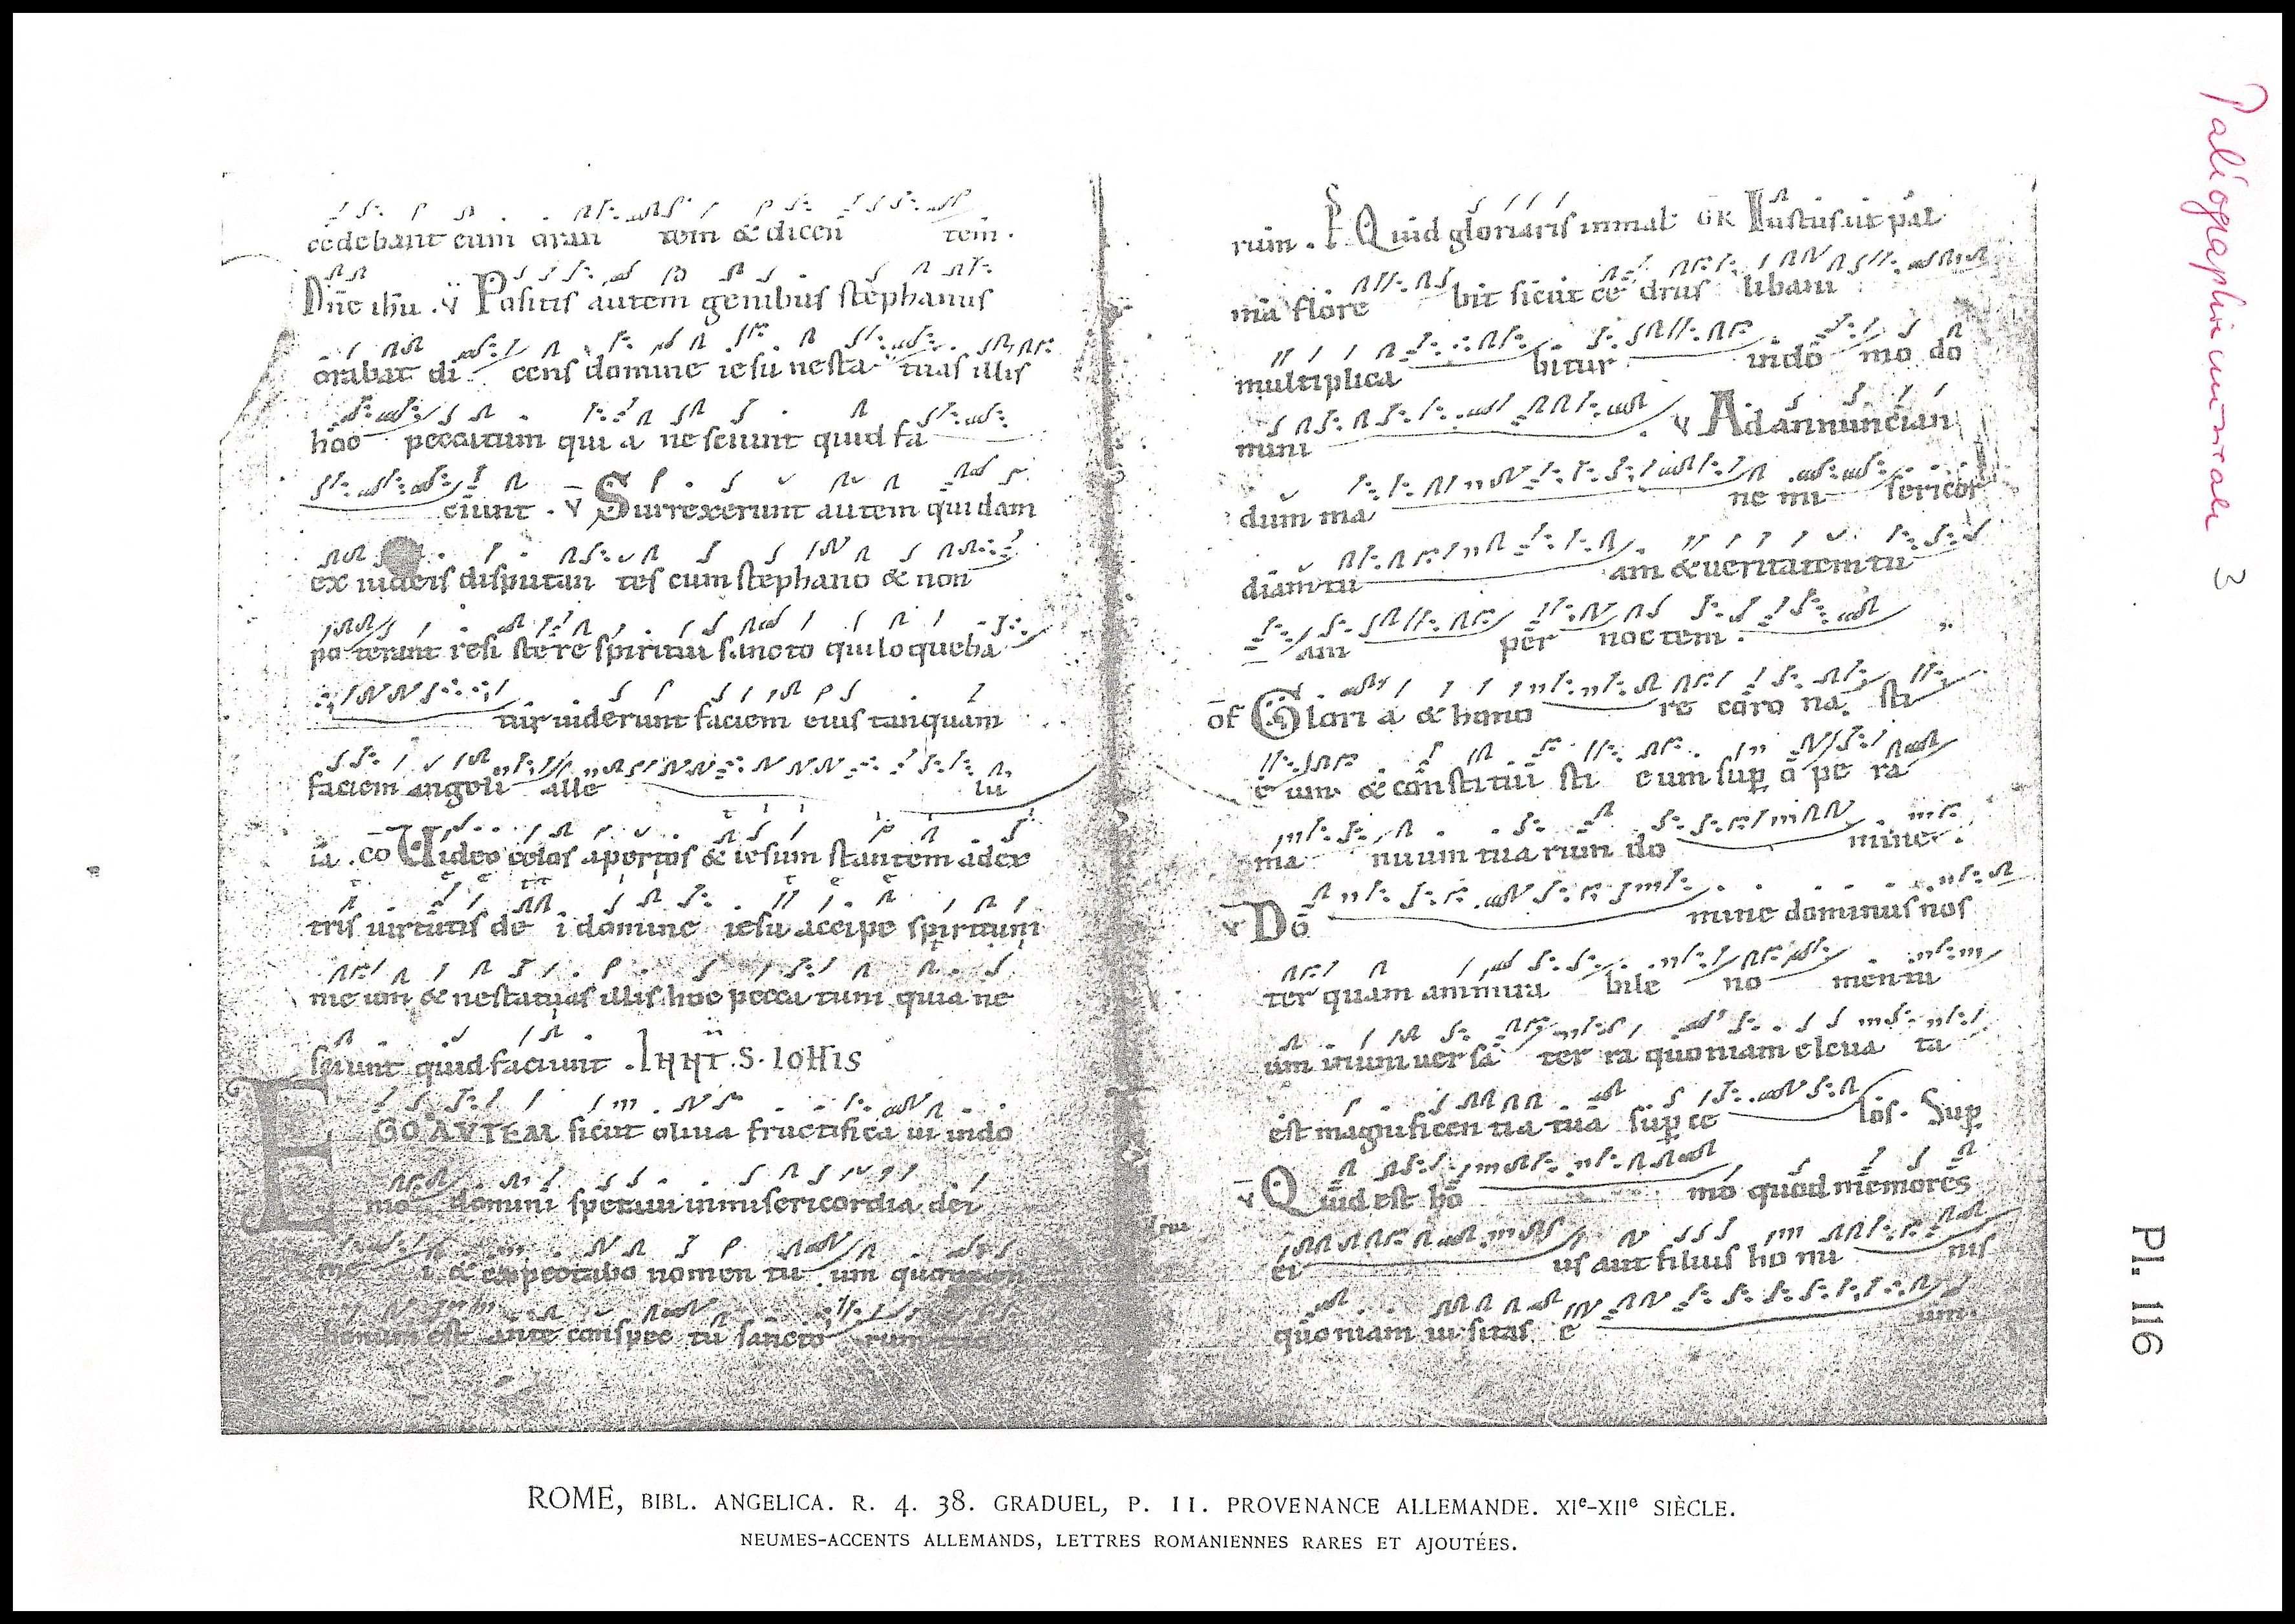 cedebant eum oran tem & dicen tem .
Dñe ihu . v Positis autem genibus stephanus
orabat di cens domine iesu ne sta tuas illis
hoc peccatum qui a nesciunt quid fa
ciunt . v Surrexerunt autem quidam
ex iudeis disputan tes cum stephano & non
po terant resi stere spiritui sancto qui loqueba
tur uiderunt faciem eius tanquam
faciem angeli alle lu
ia . co Uideo celos apertos & iesum stantem adex
tris uirtutis de i domine iesu accipe spiritum
me um & ne statuas illis hoc pecca tum quia ne
sciunt quid faciunt . S . IOHIS
EGO AVTEM sicut oliua fructifica ui indo
mo domini speraui inmisericordia dei
me i & expectabo nomen tu um quoniam
bonum est ante conspec tu sancto rum
rum . P Quid gloriaris inmal GR Iustus ut pal
ma flore bit sicut ce drus libani
multiplica bitur indo mo do
mini v Ad annuncian
dum ma ne mi sericor
diam tu am & ueritatem tu
am per noctem .
of Glori a & hono re coro na sti
e um & constitui sti eum sup o pe ra
ma nuum tuarum do mine .
v Do mine dominus nos
ter quam ammira bile no men tu
um inuniuersa ter ra quoniam eleua ta
est magnificen tia tua sup ce los . Sup
v Quid est ho mo quod memores
ei us aut filius ho mi nis
quoniam uisitas e um .
ROME, BIBL. ANGELICA. R. 4. 38. GRADUEL, P. 11. PROVENANCE ALLEMANDE. XIe-XIIe SIÈCLE.
NEUMES-ACCENTS ALLEMANDS, LETTRES ROMANIENNES RARES ET AJOUTÉES.
Paléographie musicale 3
Pl. 116